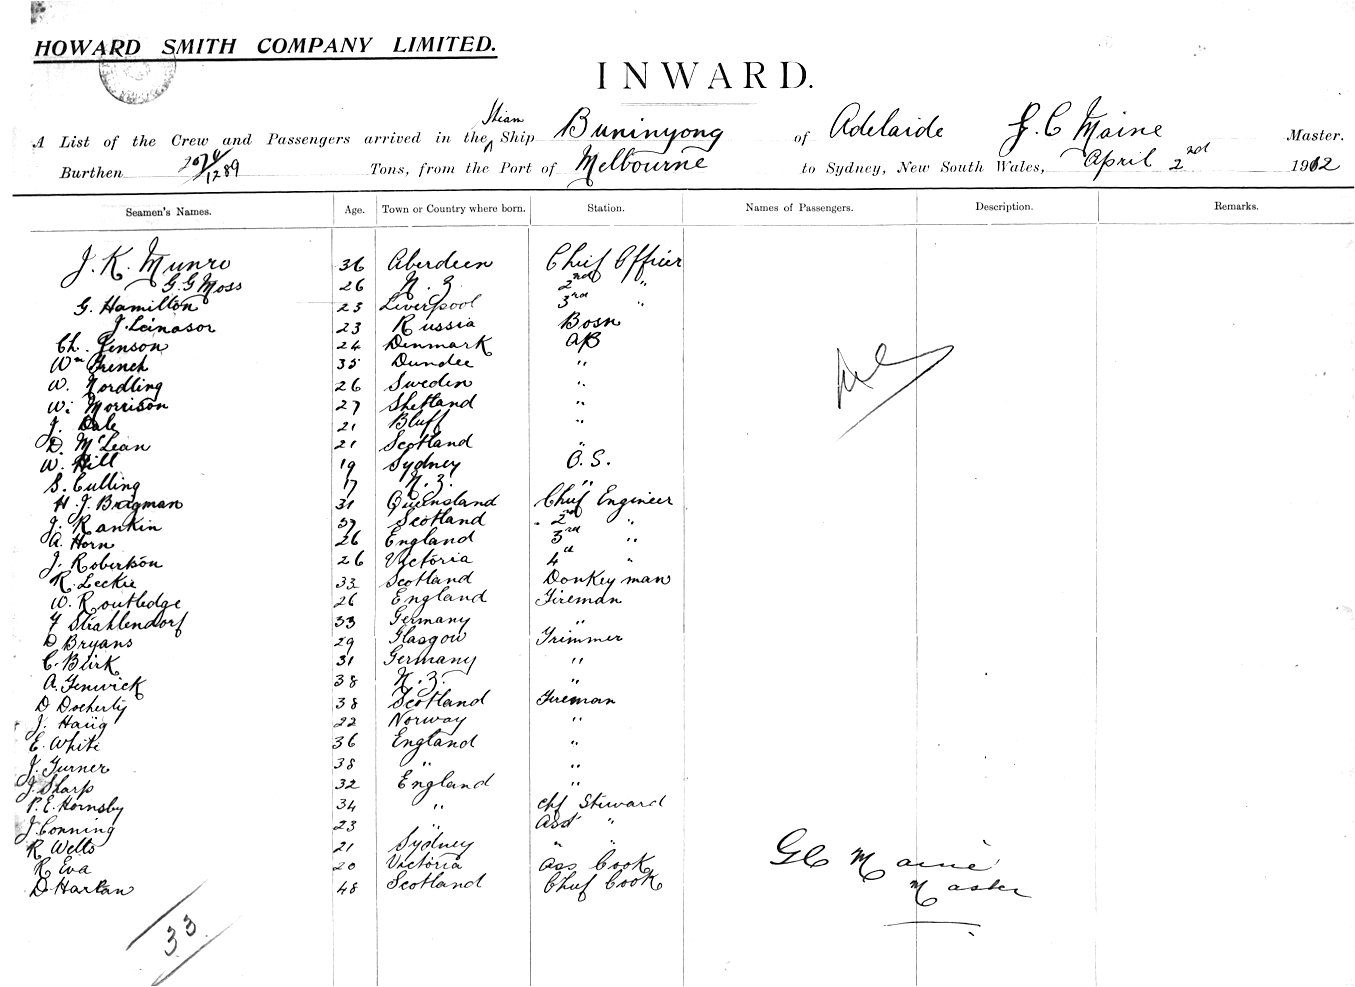 HOWARD SMITH COMPANY LIMITED.
INWARD.
A List of the Crew and Passengers arrived in the Steam Ship Buninyong of Adelaide G. C Maine Master.
Burthen 2070/1289 Tons, from the Port of Melbourne to Sydney, New South Wales, April 2nd 1902
Seamen's Names. Age. Town or Country where born. Station. Names of Passengers. Description. Remarks.
J. K. Munro 36 Aberdeen Chief Officer
G. G Moss 26 N. Z. 2nd "
G. Hamilton 23 Liverpool 3rd "
J. Leinasor 23 Russia Bosn
Ch. Jenson 24 Denmark AB
Wm French 35 Dundee "
W. Nordling 26 Sweden "
W. Morrison 27 Shetland "
J. Dale 21 Bluff "
D. McLean 21 Scotland "
W. Hill 19 Sydney O. S.
S. Culling 17 N. Z. "
H. J. Bragman 31 Queensland Chief Engineer
J. Rankin 37 Scotland 2nd "
A. Horn 26 England 3rd "
J. Robertson 26 Victoria 4th "
R. Leckie 33 Scotland Donkey man
W. Routledge 26 England Fireman
F Strahlendorf 33 Germany "
D Bryans 29 Glasgow Trimmer
C. Blirk 31 Germany "
A. Fenwick 38 N. Z. "
D Docherty 38 Scotland Fireman
J. Haüg 22 Norway "
E. White 36 England "
J. Turner 38 " "
J. Sharp 32 England "
P. E. Hornsby 34 " Chf Steward
J. Conning 23 " Asst "
R Wells 21 Sydney " "
R Eva 20 Victoria Ass Cook
D Harlan 48 Scotland Chief Cook
G C Maine
Master
33